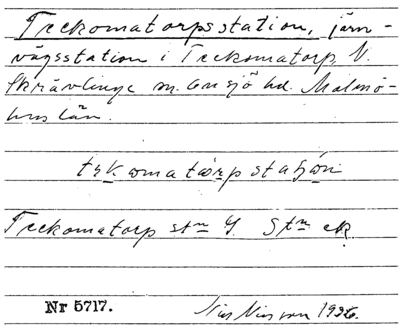 Trekomatorpsstation, järn-
vägsstation i Trekomatorp V.
Skrävlinge sn. Onsjö hd. Malmö-
hus län.
Trekomatorp stn Y. Stn ek
Nr 5717.
Nils Nilsson 1936.